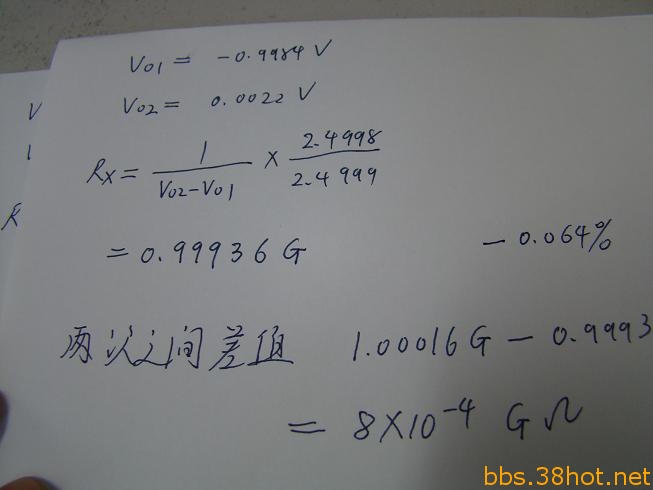 V01 = -0.9984 V
V02 = 0.0022 V
Rx = 1/(V02-V01) × 2.4998/2.4999
= 0.99936 G
- 0.064%
两次之间差值 1.00016 G - 0.9993
= 8×10^-4 GΩ
V
1
R
bbs.38hot.net